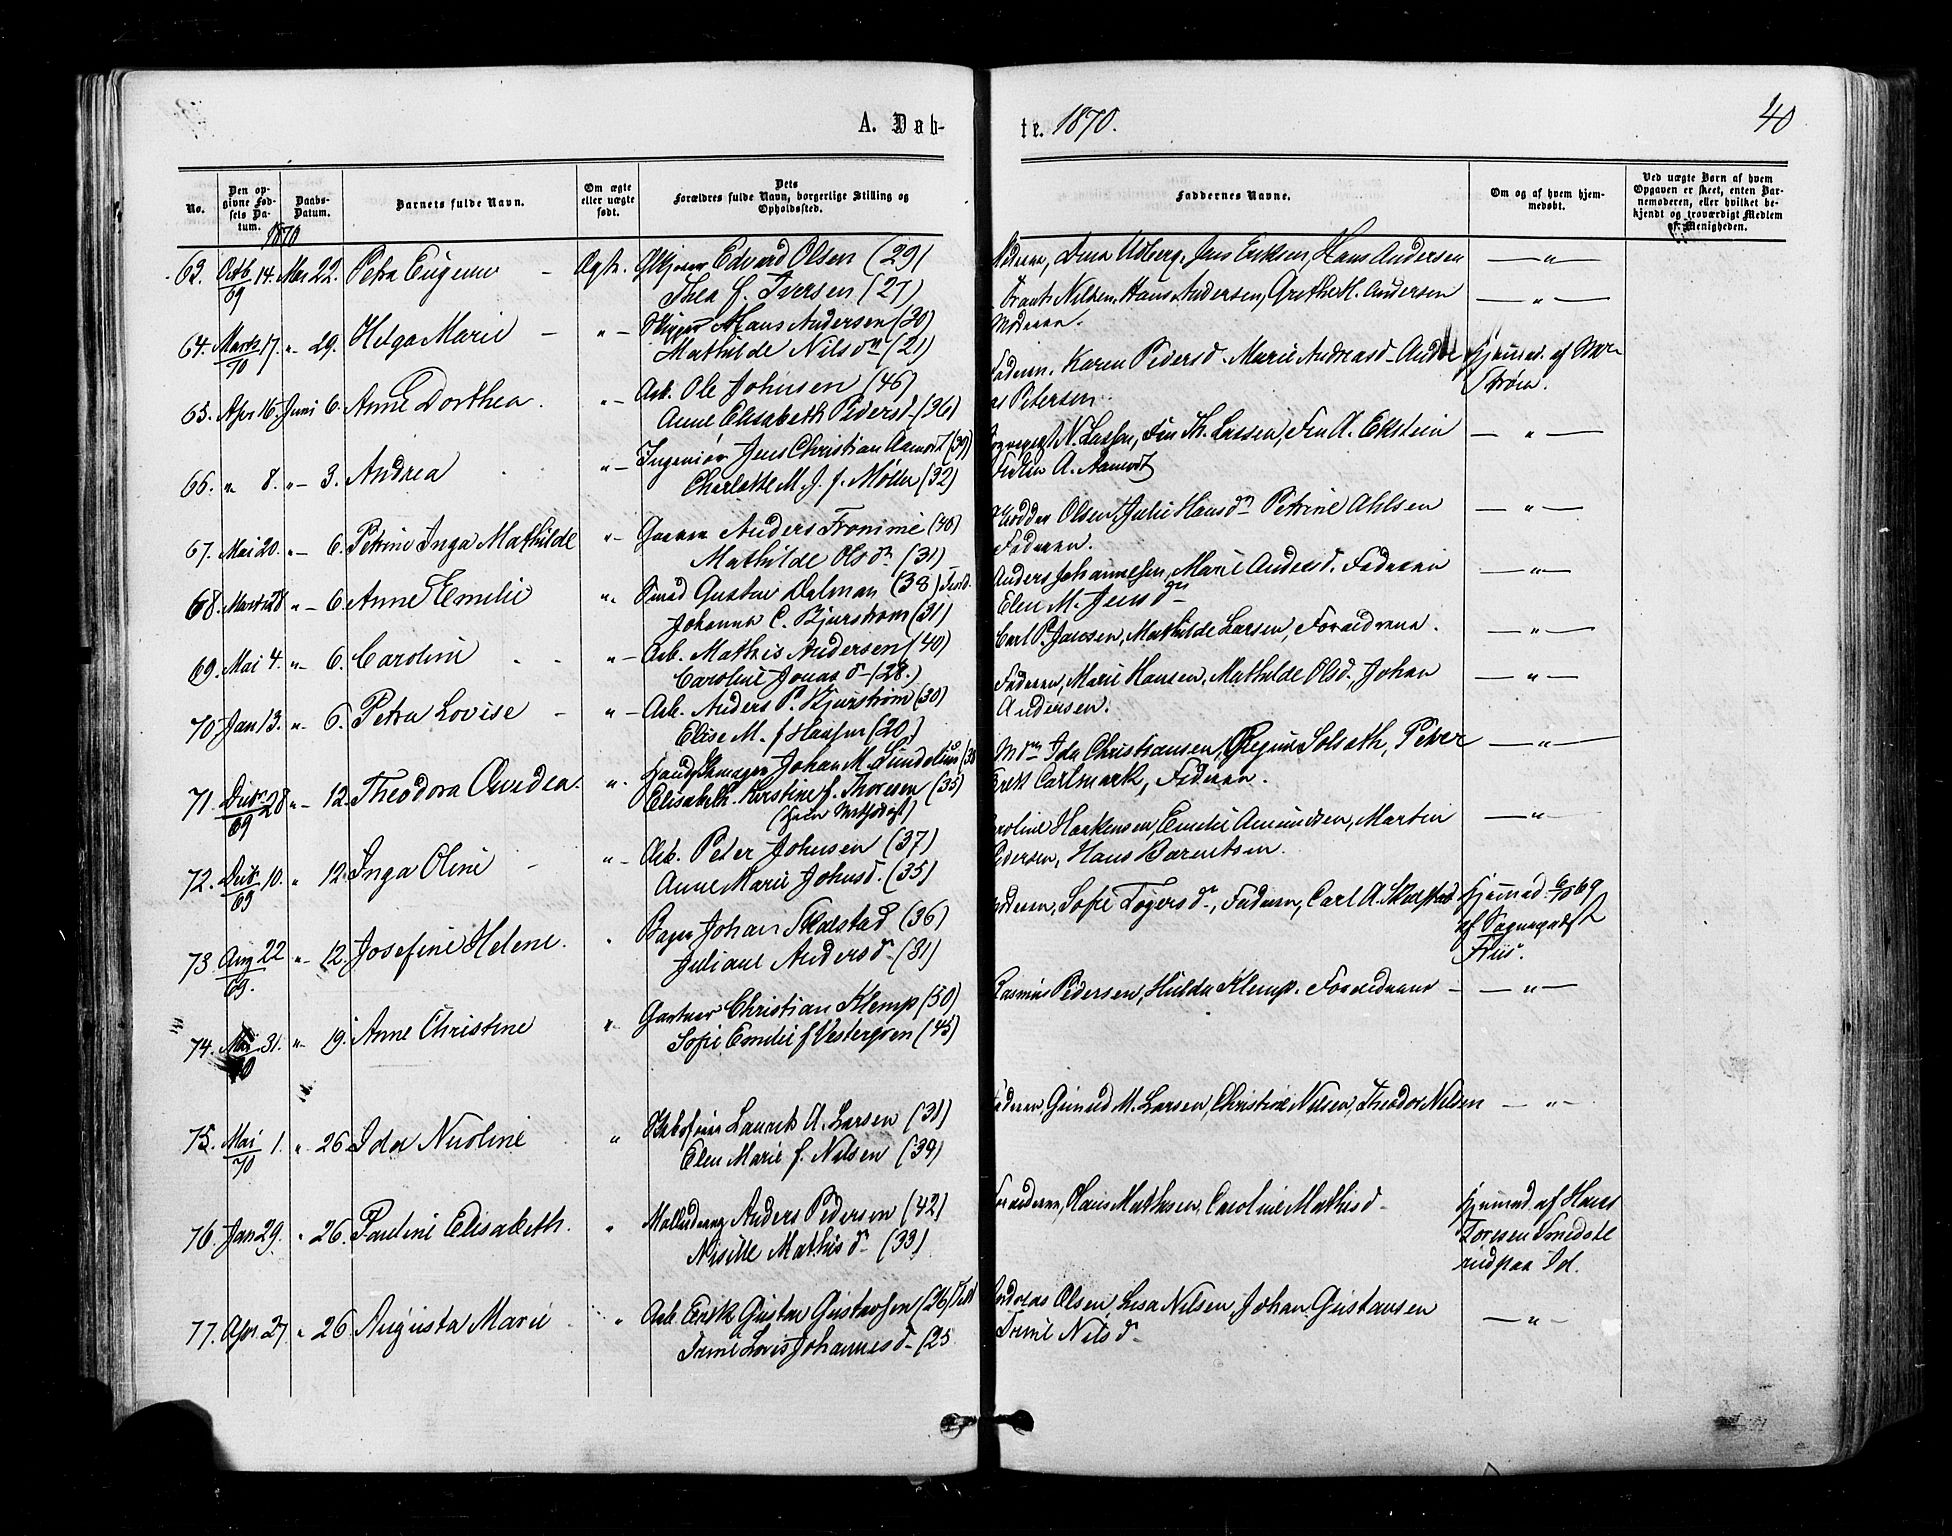 A. Døb-
te. 1870.
40
No.
Den opgivne Fødsels Datum.
Daabs-Datum.
Barnets fulde Navn.
Om ægte eller uægte født.
Dets Forældres fulde Navn, borgerlige Stilling og Opholdssted.
Faddernes Navne.
Om og af hvem hjemmedøbt.
Ved uægte Børn af hvem Opgaven er skeet, enten Barnemoderen, eller hvilket bekjendt og troværdigt Medlem af Menigheden.
1870
63. Octb 14. 69 Mai 22. Petra Eugenie – Ægte. Edvard Olsen (29)
Thea f. Iversen (27)
Moderen, Jens Eriksen, Hans Andersen — " —
Frants Nilsen, Hans Andersen, Grethe M. Andersen — " —
Moderen.
64. Marts 17. 70 " 29. Helga Marie – " – Hans Andersen (30)
Mathilde Nilsdn (21)
65. Apr 16. Juni 6. Anne Dorthea. " – Arb. Ole Johnsen (46)
Anne Elisabeth Pedersd. (36)
Faderen, Karen Pedersd. Marie Andreasd. Andreas Petersen.
Hjemmed. af
Strøm.
66. " 8. " – 3. Andrea " – Ingeniør Jens Christian Aamodt (39)
Charlotte M. J. f. Møller (32)
N. Lassen, Fru Th. Lassen, Fru A. Ekstein — " —
A. Aamodt
67. Mai 20. " – 6. Petrine Inga Mathilde " – Anders Fromme (40)
Mathilde Olsdn. (31)
Olsen, Julie Hansdn Petrine Ahlsen — " —
Faderen.
68. Marts 28 " – 6. Anne Emilie " Smed Gustav Dalman (38)
Johanna C. Bjurstrøm (31)
Anders Johannesen, Marie Andersd. Faderen — " —
Elen M. Jensdn
69. Mai 4. " – 6. Caroline " – Arb. Mathis Andersen (40)
Caroline Jonasd – (28.)
Carl P. Jansen, Mathilde Larsen, Forældrene. — " —
70. Jan 13. " – 6. Petra Lovise – " – Arb. Anders P. Bjurstrøm (30)
Elise M. f Hansen (20)
Faderen, Marie Hansen, Mathilde Olsd., Johan — " —
Andersen.
71. Decbr. 28 69 " – 12. Theodora Andea. " Johan M. Sundelius (38
Elisabeth Kerstine f. Thoresen (35)
(hun Methodist)
Ida Christiansen, Solsath, Peter — " —
Carlmark, Faderen.
72. Decbr 10. 69 " 12. Inga Oline – " – Arb. Peter Johnsen (37)
Anne Marie Johnsd. (35)
Caroline Haakensen, Emilie Amundsen, Martin — " —
Pedersen, Hans Barentsen.
73. Aug 22 69. " – 12. Josefine Helene. " Bager Johan Skalstad (36)
Juliane Andersd – (31)
Moderen, Sofie Tøgersdn, Faderen, Carl A. Skalstad Hjemmed. 69
af Sognepræst
Friis.
74. Mai 31. 70 " – 19. Anne Christine " Gartner Christian Klemp (50)
Sofie Emilie f Vestergren (45)
Rasmus Pedersen, Hulda Klemp. Forældrene – — " —
75. Mai 1. 70 " – 26 Ida Nicoline " Laurits A. Larsen (31)
Elen Marie f. Nilsen (39)
Faderen M. Larsen, Christine Nilsen, Theodor Nilsen — " —
76. Jan 29. " 26. Pauline Elisabeth. " Anders Pedersen (42)
Mathisd – (33)
Forældrene, Hans Mathisen, Caroline Mathisd – Hjemmed. af Hans
Toresen
paa Id.
77. Apr. 27. " 26. Augusta Marie " Arb. Erik Gustav Gustavsen (26)
Lovise Johannesd – (25
Andreas Olsen Lisa Nilsen Johan Gustavsen — " —
Nilsd –